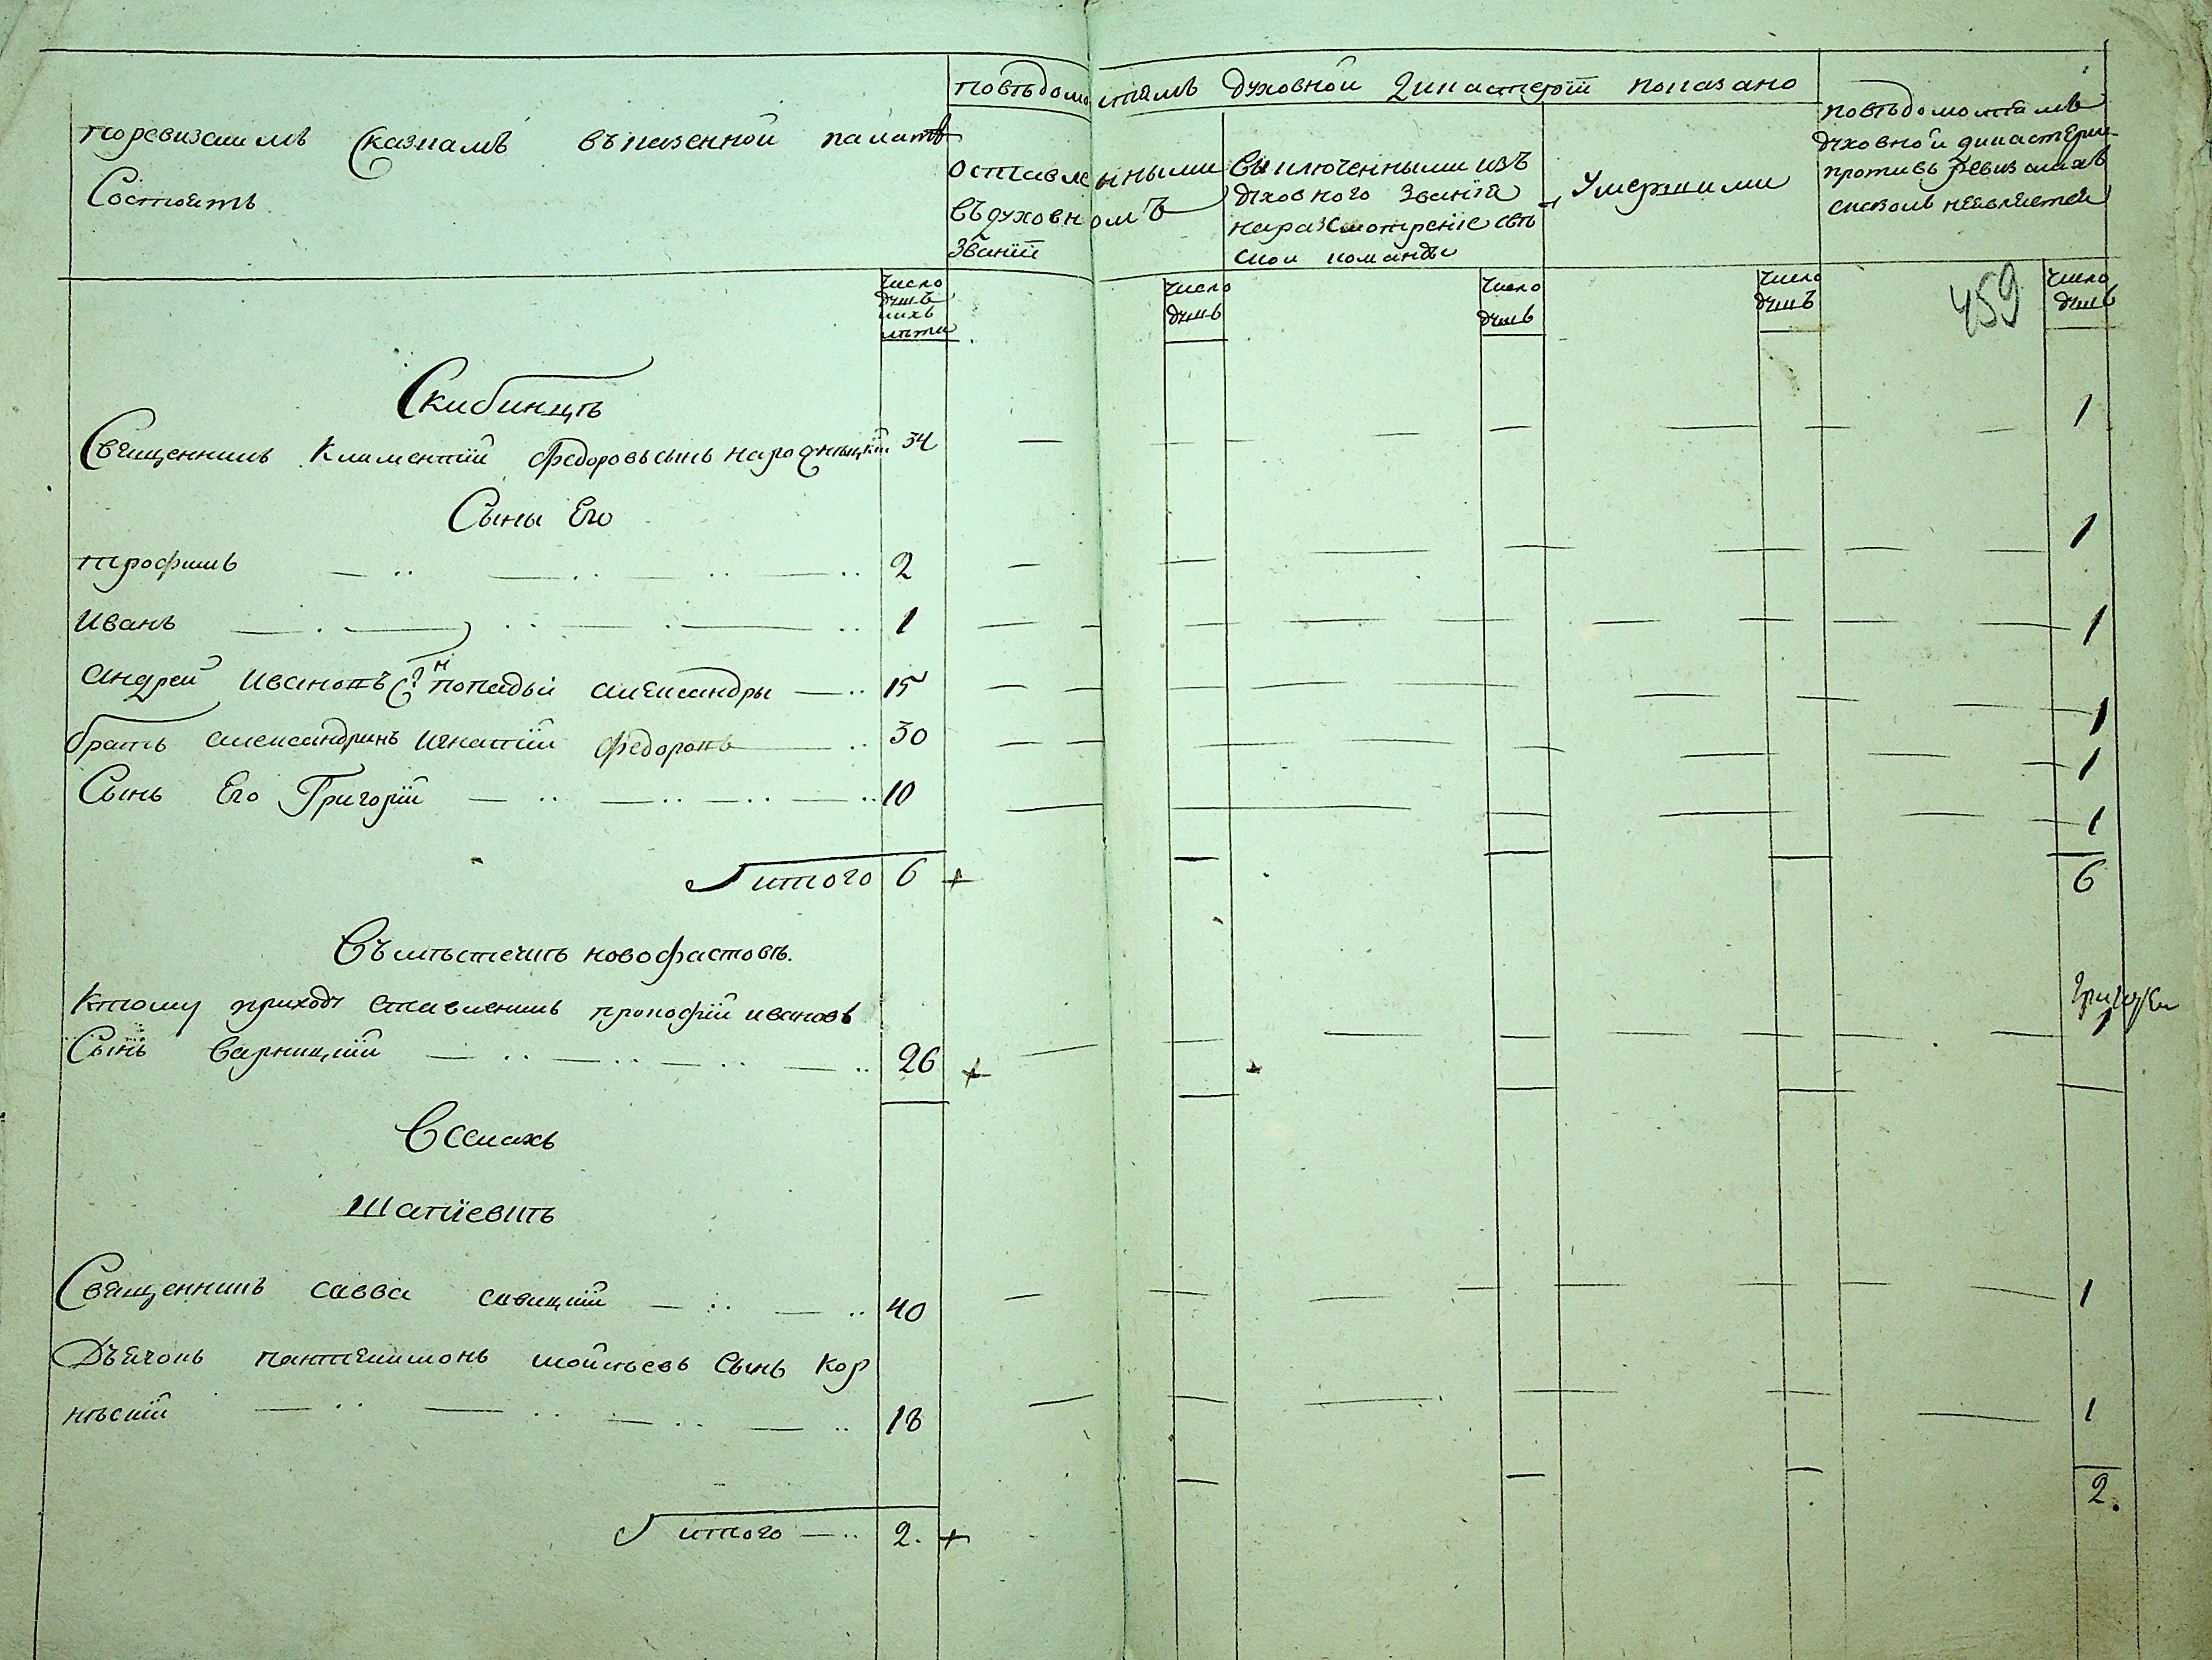 Поревизскимъ Сказкамъ въказенной палатѣ
Состоитъ
Число
душъ
ихъ
лѣта
Повѣдомостямъ духовной дикастерїи показано
оставленными
въдуховномъ
званїи
Число
душъ
выключенными изъ
духовного званїя
наразсмотренїе свѣ
ской команды
Число
душъ
умершими
Число
душъ
повѣдомостямъ
духовной дикастерїи
противъ ревизскихъ
сказокъ неявляется
459
Число
душъ
Скибинцѣ
Священникъ Климентїй Федоровъ сынъ 34 1
Сыны Его
Трофимъ 2 1
Иванъ 1 1
Андрей Ивановъ С? н попадьи александры 15 1
братъ александринъ Игнатїй Федоровъ 30 1
Сынъ Его Григорїй 10 1
итого 6 + 6
Въмѣстечкѣ новофастовѣ.
Ктому приходу ставленикъ прокофїй ивановъ
Сынъ Варницкїй 26 + 1
Вселахъ
Шапїевкѣ
Священникъ савва савицкїй 40 1
Дьячокъ пантелимонъ мойсѣевъ Сынъ Кор
нѣскїй 18 1
итого 2. + 2.